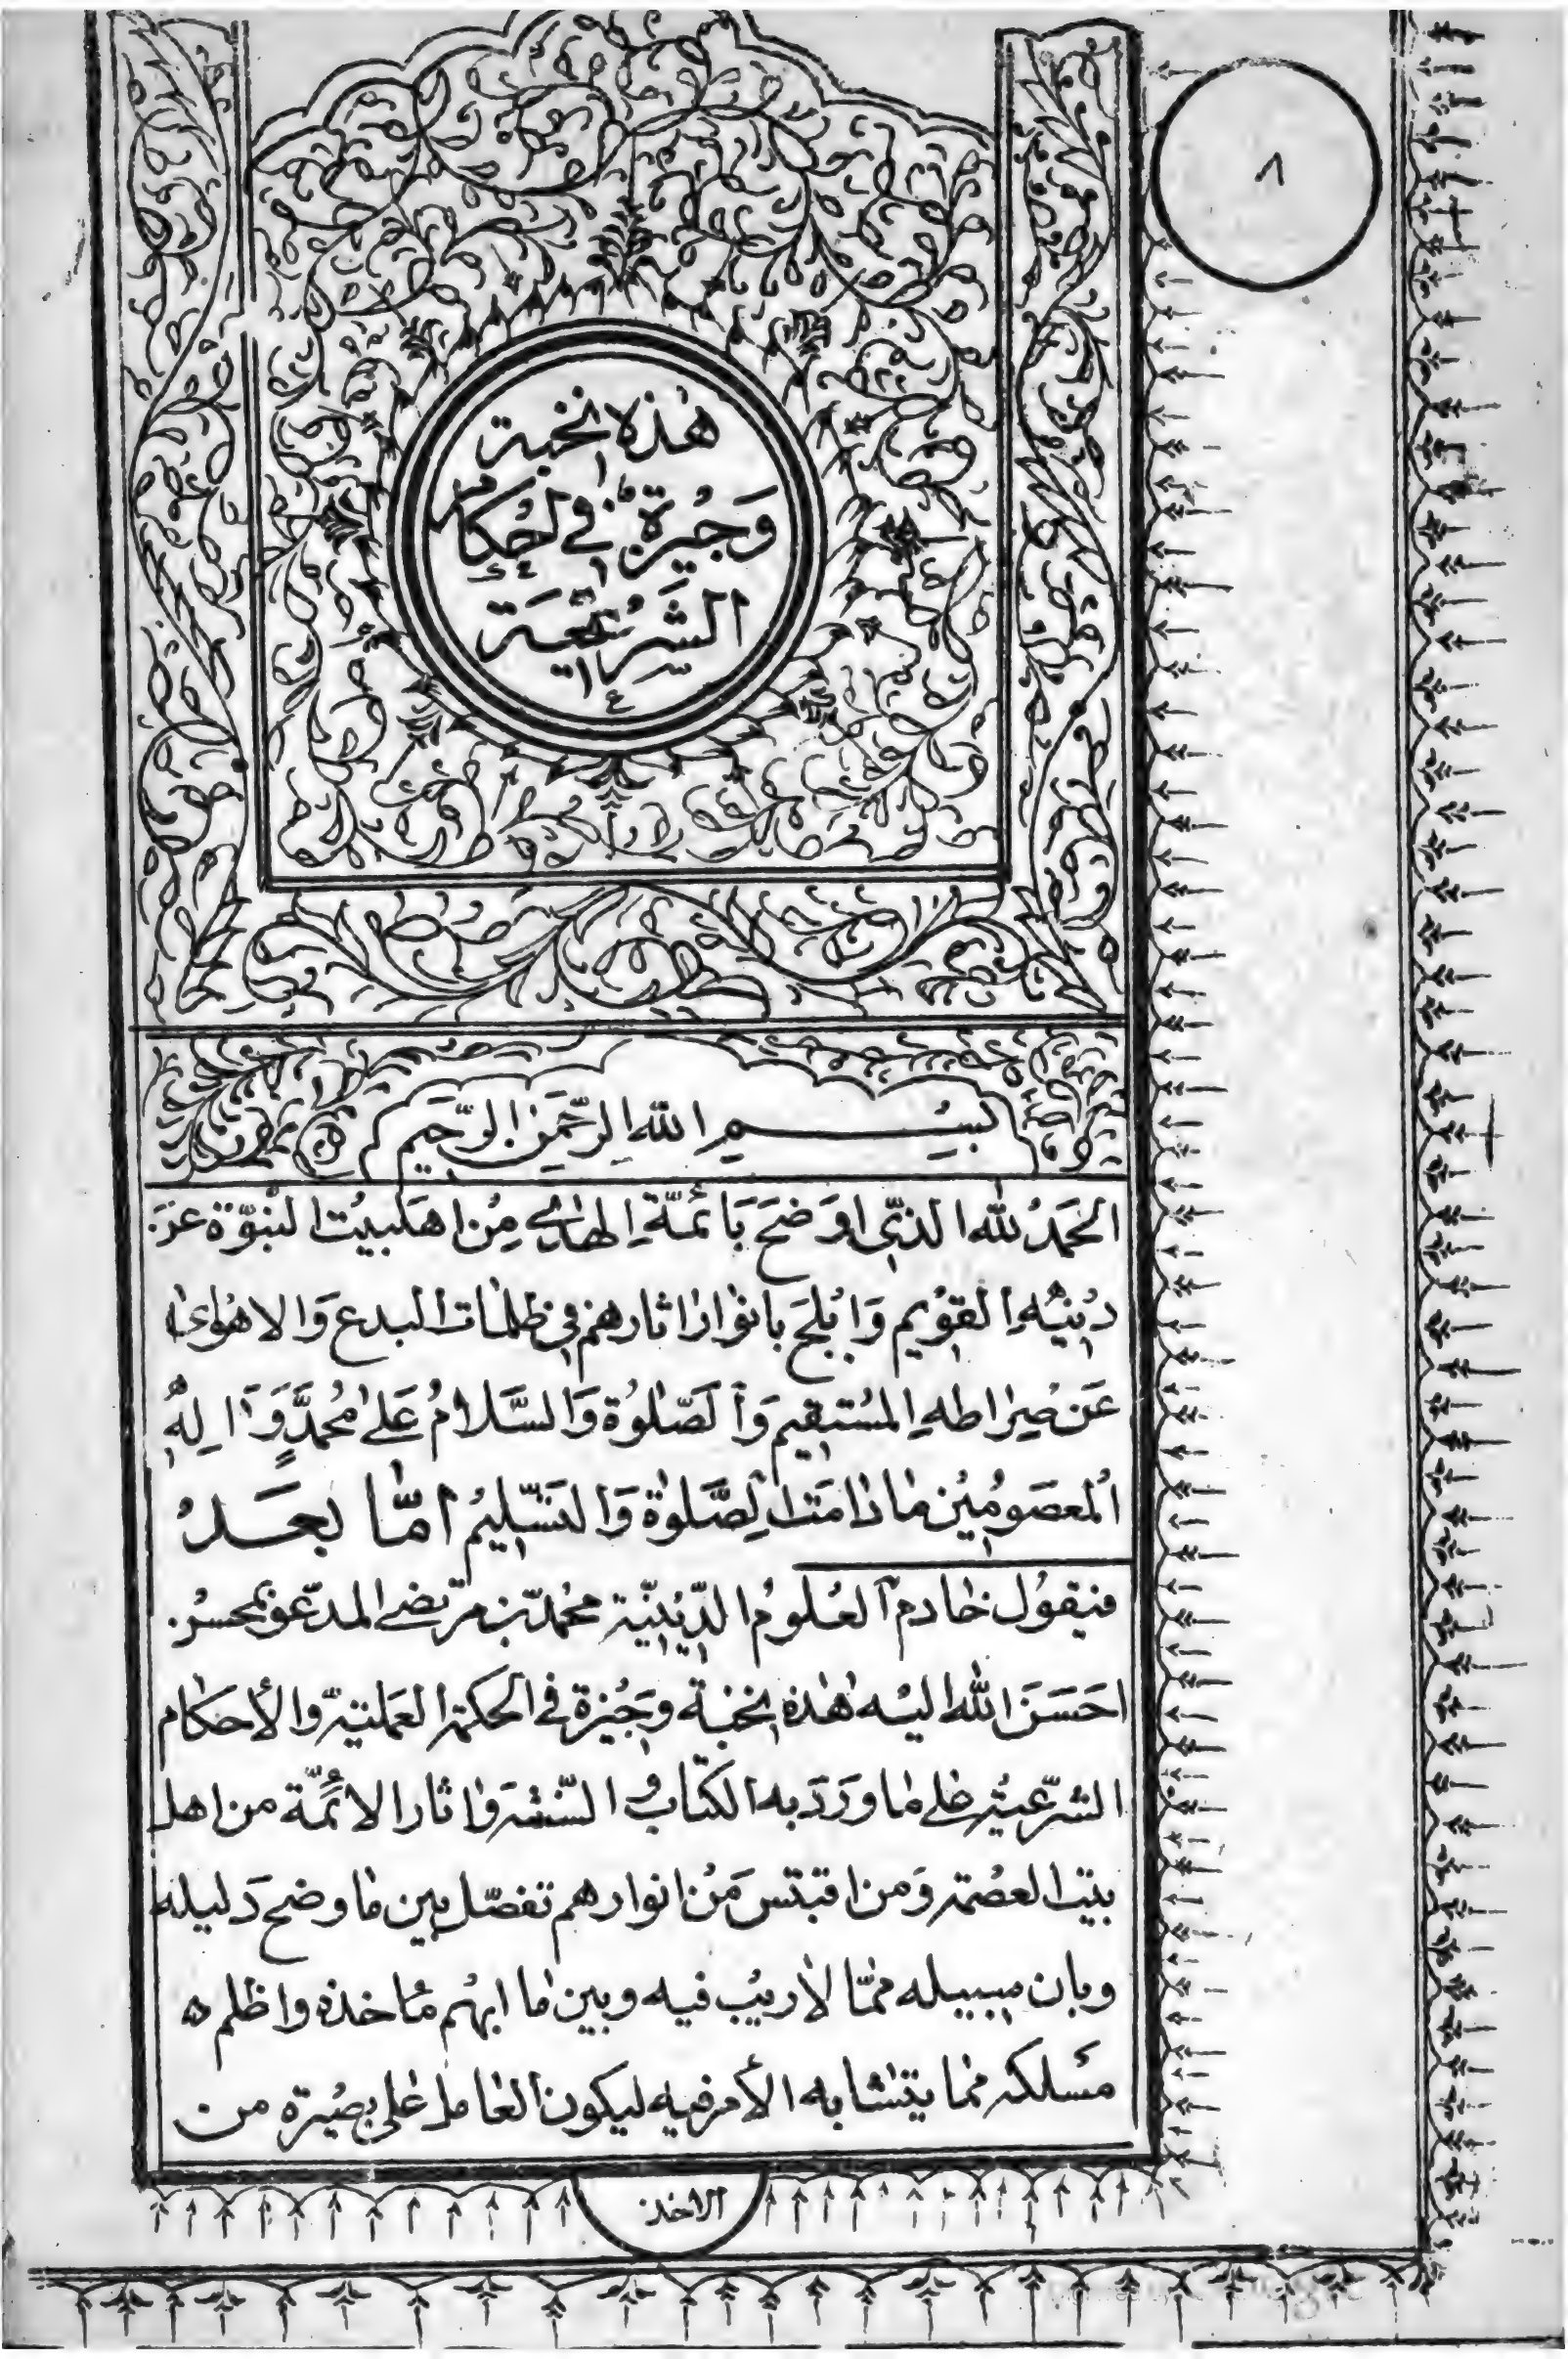 ٨
هذه نخبة
وجيزة في احكام
الشريعة
بسم الله الرحمن الرحيم
الحمد لله الذي اوضح بائمة الهدى من اهل بيت النبوة عن
دينه القويم وابلج بانوار اثارهم في ظلمات البدع والاهواء
عن صراطه المستقيم والصلوة والسلام على محمد واله
المعصومين ما دامت الصلوة والتسليم اما بعد
فيقول خادم العلوم الدينية محمد بن مرتضى المدعو بمحسن
احسن الله اليه هذه نخبة وجيزة في الحكمة العملية والأحكام
الشرعية على ما ورد به الكتاب و السنة واثار الائمة من اهل
بيت العصمة ومن اقتبس من انوارهم تفصل بين ما وضح دليله
وبان سبيله مما لا ريب فيه وبين ما ابهم مأخذه واظلم
مسلكه مما يتشابه الأمر فيه ليكون العامل على بصيرة من
الاخذ